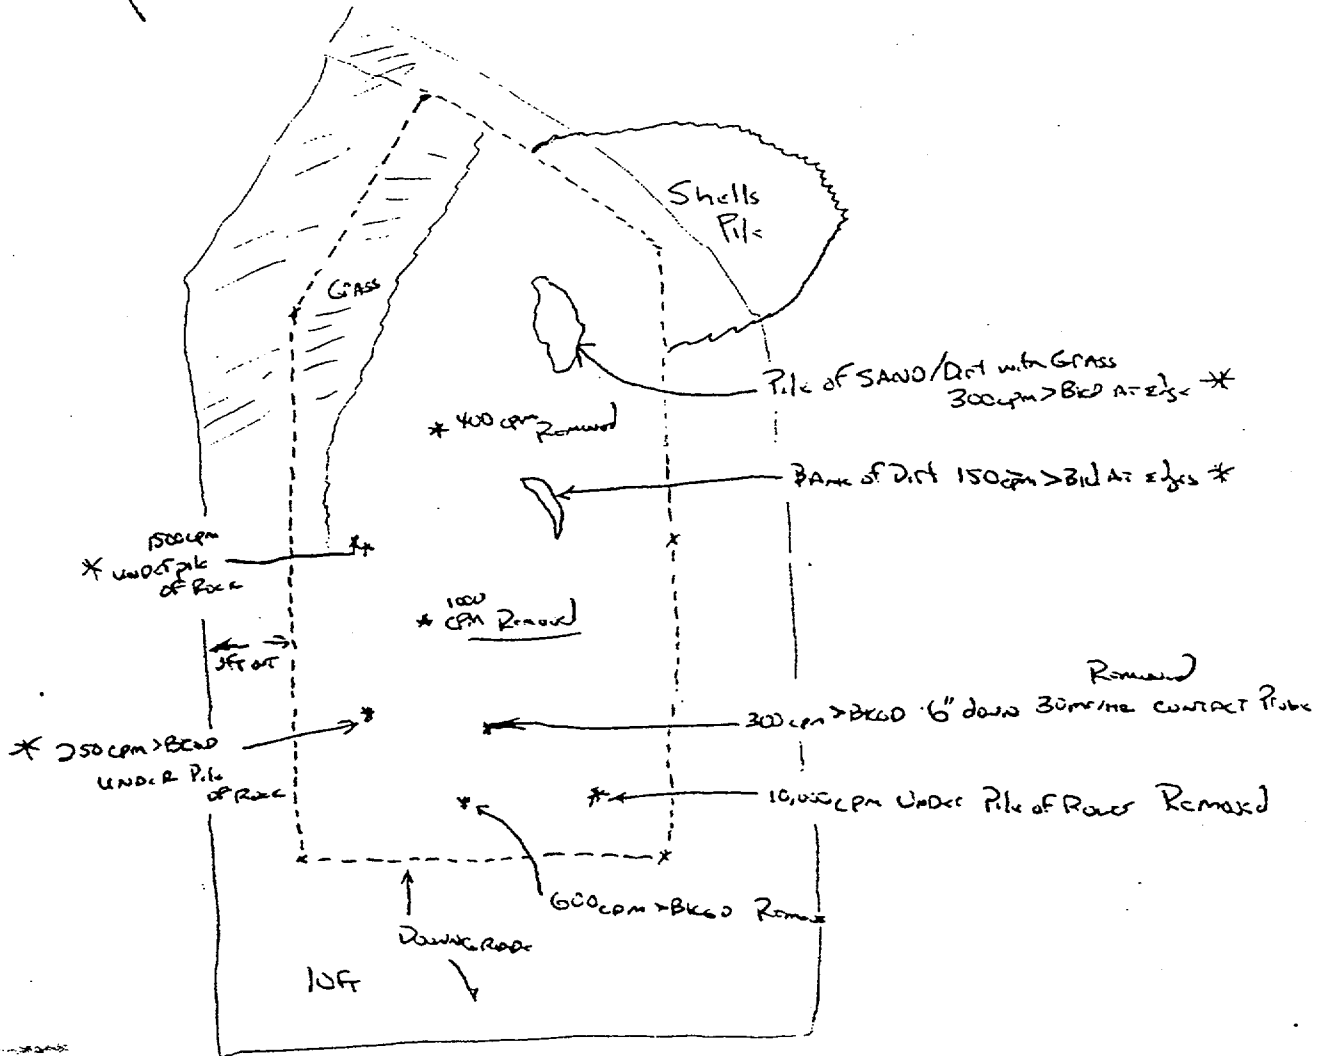 Shells
Pile
Grass
Pile of SAND/Dirt with Grass
300cpm>BKD AT Edge *
* 400 cpm Removed
BAnk of Dirt 150cpm>Bkd AT Edges *
1500cpm
* UNDER pile
of Rock
* 1000
CPM Removed
Removed
300cpm>BKGD 6" down 30mr/HR CONTACT Probe
* 250cpm>BKGD
UNDER Pile
of Rock
10,000cpm Under Pile of Rocks Removed
600cpm>BKGD Remove
DOWNGRADE
10ft